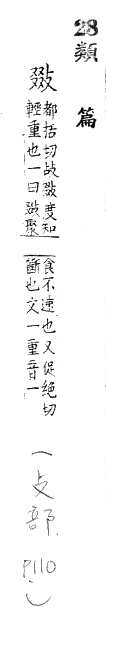 28類篇
敪
都括切敁敪度知
輕重也一曰敪聚
食不速也又促絕切
斷也文一重音一
(攴部 P110)